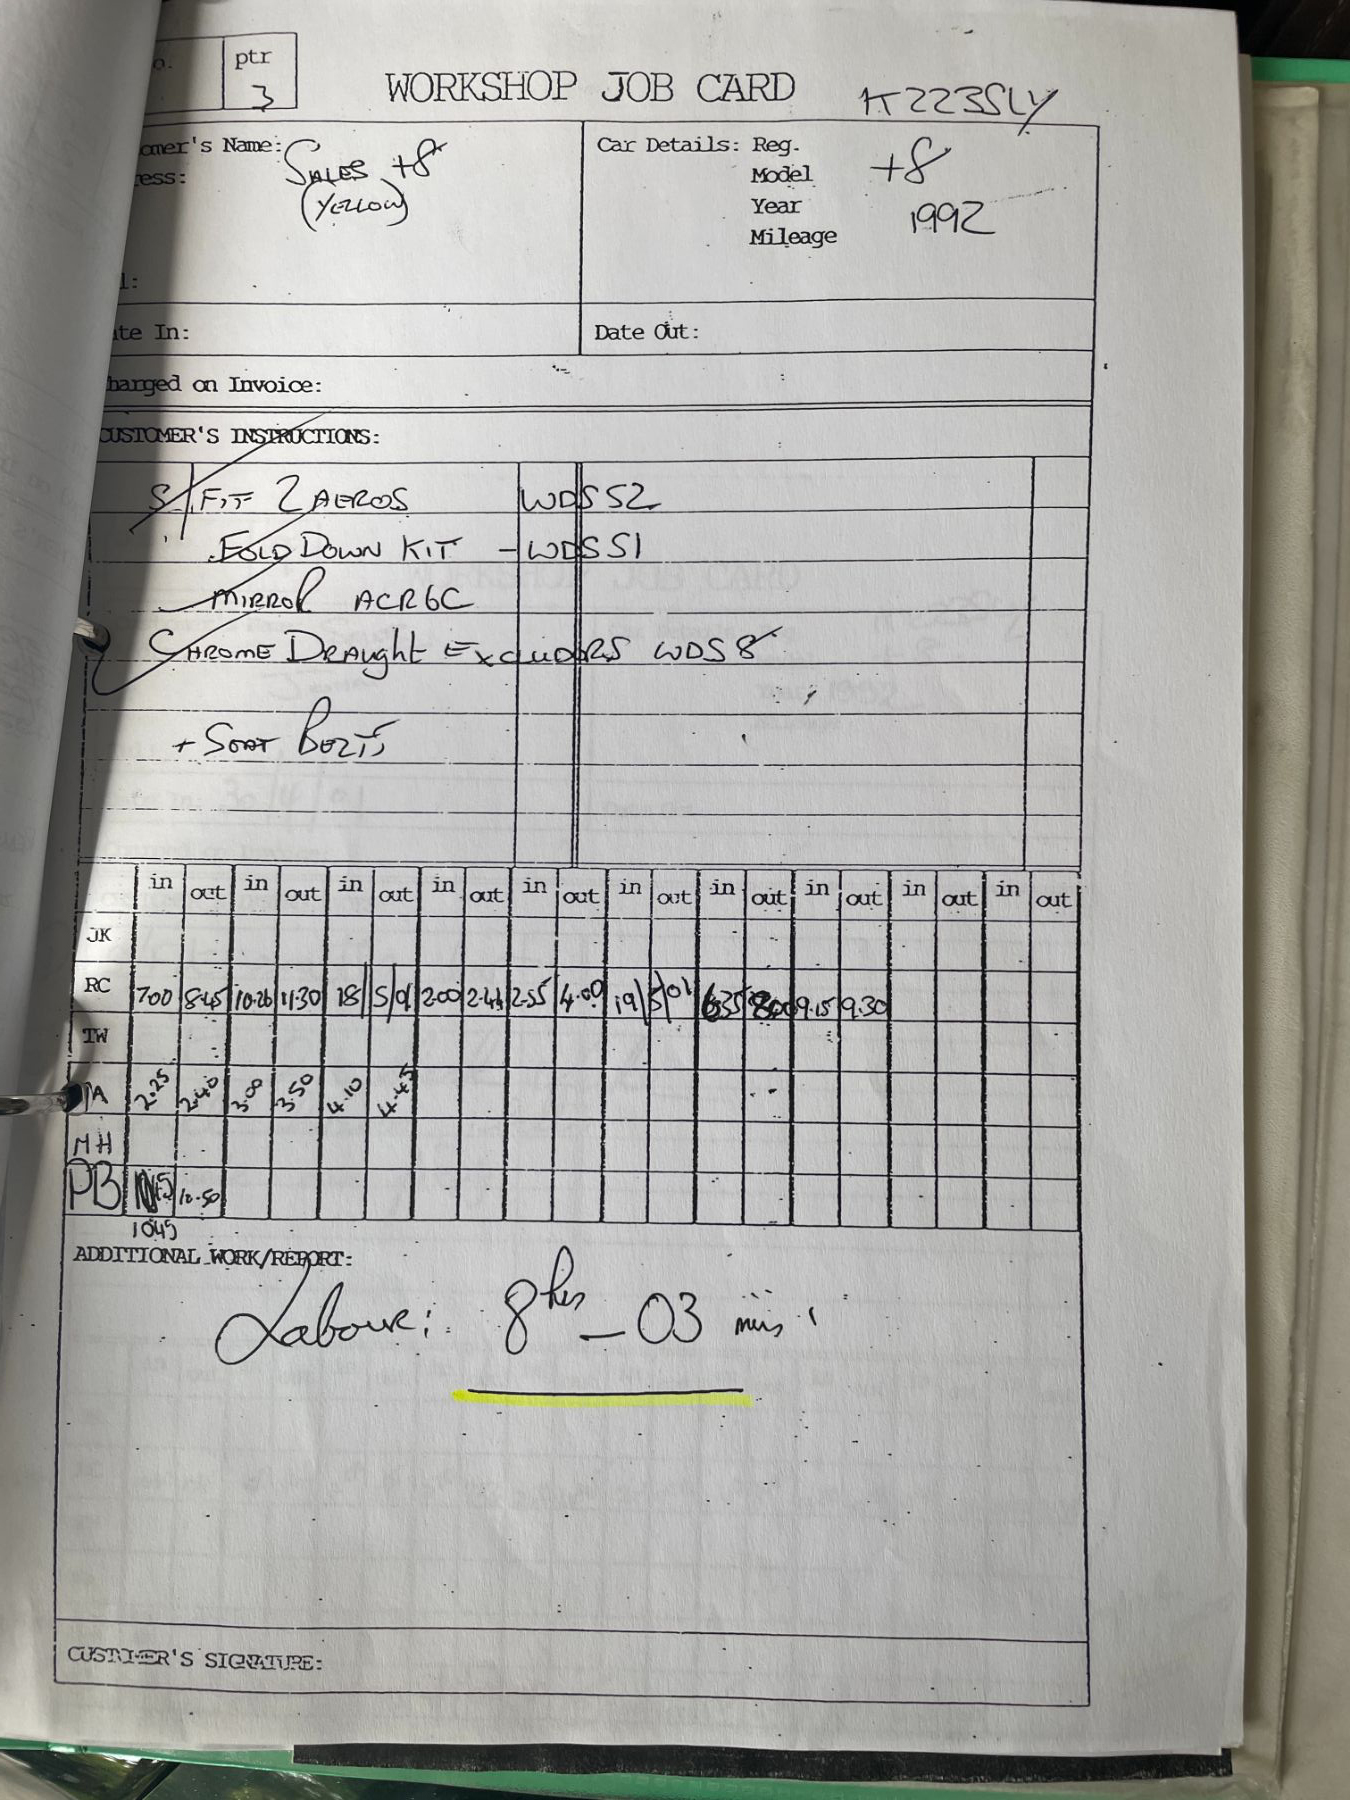 o. ptr
3
WORKSHOP JOB CARD K223SLY
omer's Name: SALES +8
ress: (YELLOW)
Car Details: Reg.
Model +8
Year 1992
Mileage
l:
te In: Date Out:
harged on Invoice:
CUSTOMER'S INSTRUCTIONS:
S/ FIT 2 AEROS WDSS2
" FOLD DOWN KIT - WDSS1
MIRROR ACR6C
CHROME DRAUGHT EXCLUDORS WDS8
+ SEAT BELTS
in out in out in out in out in out in out in out in out in out in out
JK
RC 7.00 8.45 10.26 11.30 18/5/01 2.00 2.44 2.55 4.00 19/5/01 6.35 8.00 9.15 9.30
TW
A 2.25 2.40 3.00 3.50 4.10 4.45
MH
PB 10.50
1045
ADDITIONAL WORK/REPORT:
Labour: 8 hrs - 03 mins
CUSTOMER'S SIGNATURE: